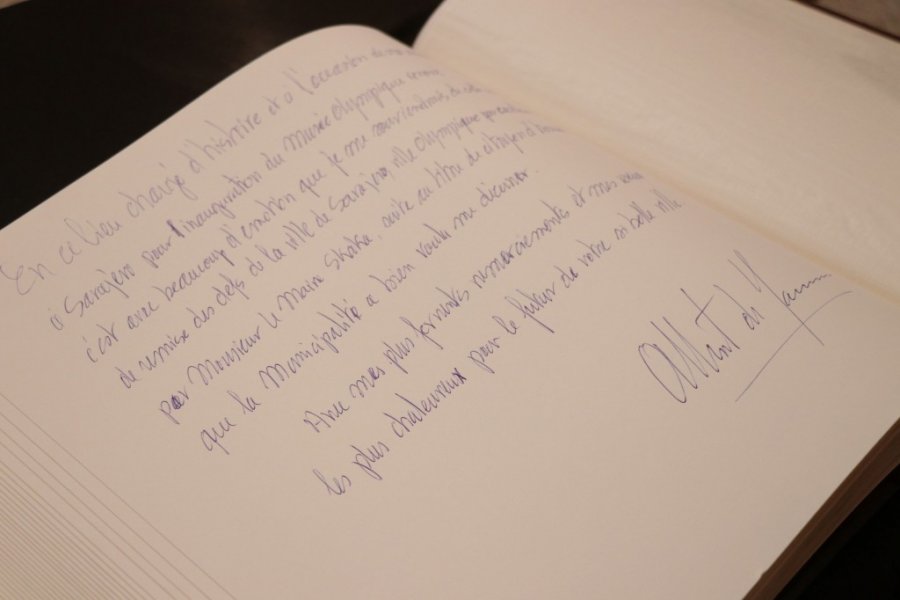 En ce lieu chargé d'histoire et à l'occasion de ma
à Sarajevo pour l'inauguration du Musée Olympique
c'est avec beaucoup d'émotion que je me souviendrais de
de remise des clefs de la ville de Sarajevo, ville Olympique
par Monsieur le Maire Skaka, suite au titre de citoyen d'honneur
que la Municipalité a bien voulu me décerner.
Avec mes plus fervents remerciements et mes vœux
les plus chaleureux pour le futur de votre si belle ville
Albert de Monaco